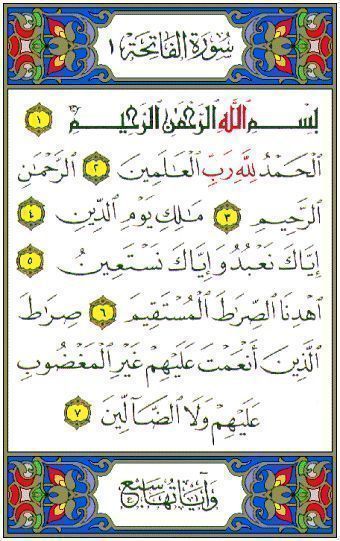 سُورَةُ الفَاتِحَة ١
بِسْمِ اللَّهِ الرَّحْمَٰنِ الرَّحِيمِ ١
الْحَمْدُ لِلَّهِ رَبِّ الْعَالَمِينَ ٢ الرَّحْمَٰنِ
الرَّحِيمِ ٣ مَالِكِ يَوْمِ الدِّينِ ٤
إِيَّاكَ نَعْبُدُ وَإِيَّاكَ نَسْتَعِينُ ٥
اهْدِنَا الصِّرَاطَ الْمُسْتَقِيمَ ٦ صِرَاطَ
الَّذِينَ أَنْعَمْتَ عَلَيْهِمْ غَيْرِ الْمَغْضُوبِ
عَلَيْهِمْ وَلَا الضَّالِّينَ ٧
وَآيَاتُهَا سَبْع